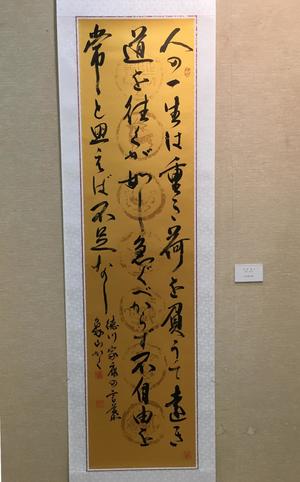 人の一生は重き荷を負うて遠き
道を往くが如し急ぐべからず不自由を
常と思えば不足なし
徳川家康の言葉
象山かく